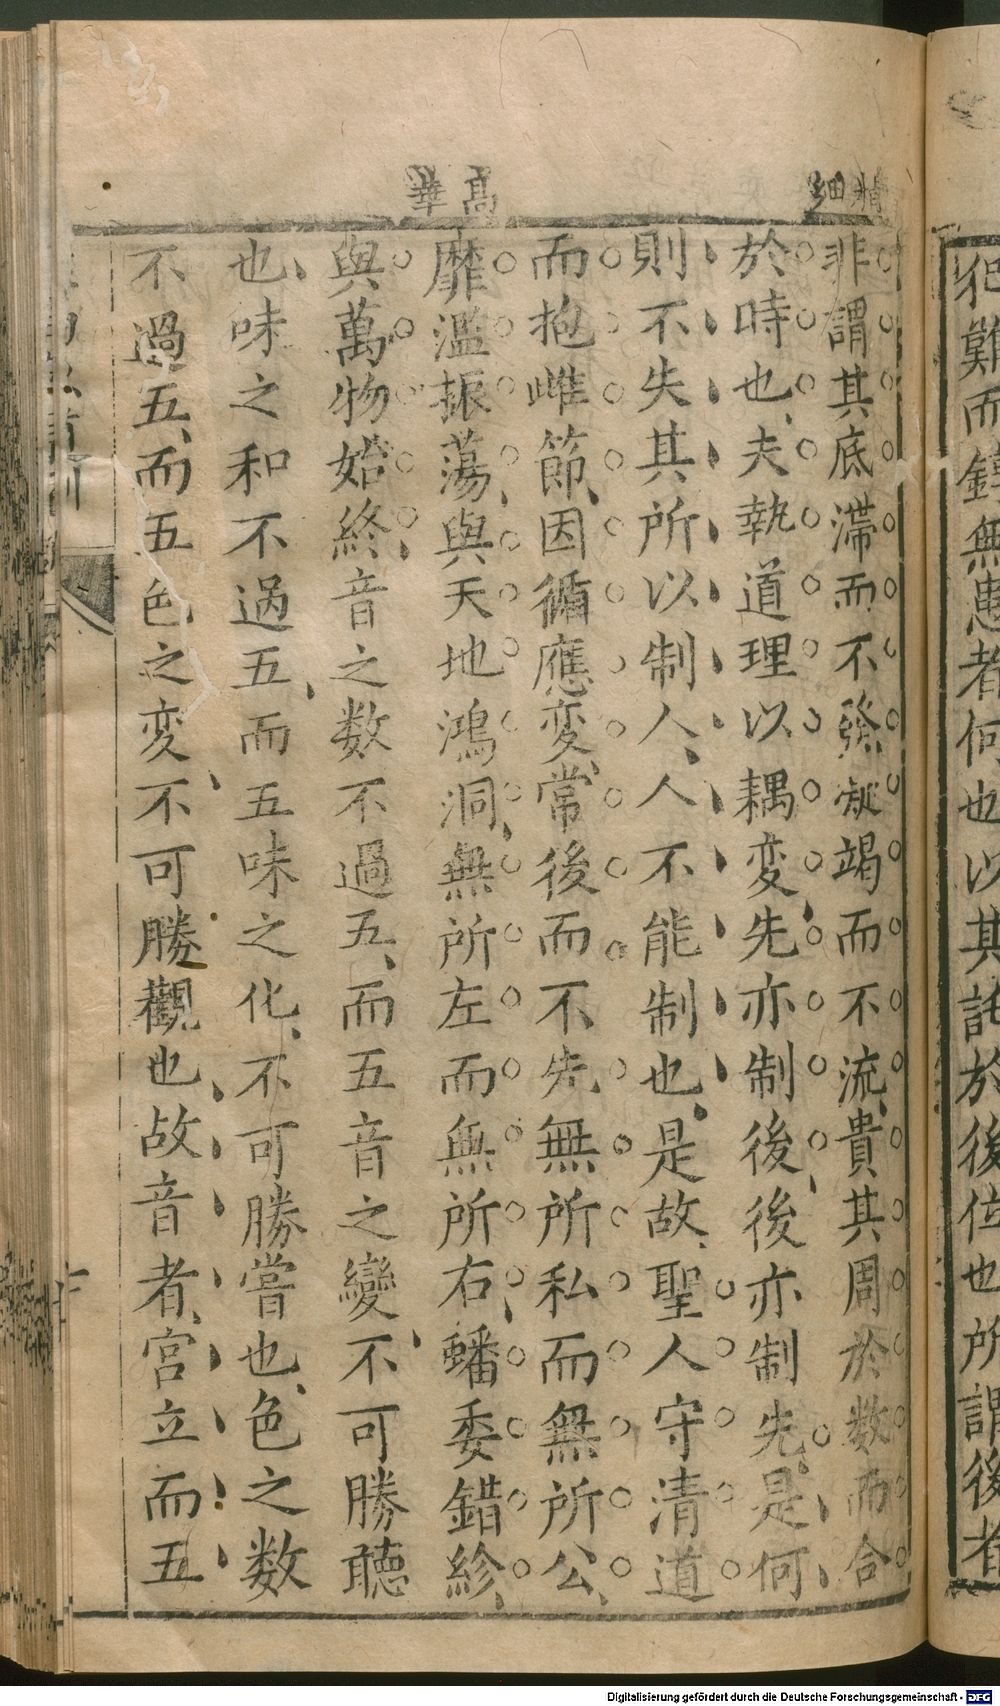 犯難而鐏無患者何也以其託於後位也所謂後者
精細
高華
非謂其底滯而不發凝竭而不流貴其周於数而合
於時也夫執道理以耦変先亦制後後亦制先是何
則不失其所以制人人不能制也是故聖人守清道
而抱雌節因循應変常後而不先無所私而無所公
靡濫振蕩與天地鴻洞無所左而無所右蟠委錯紾
與萬物始終音之数不過五而五音之變不可勝聴
也味之和不過五而五味之化不可勝嘗也色之数
不過五而五色之変不可勝觀也故音者宮立而五
Digitalisierung gefördert durch die Deutsche Forschungsgemeinschaft - DFG